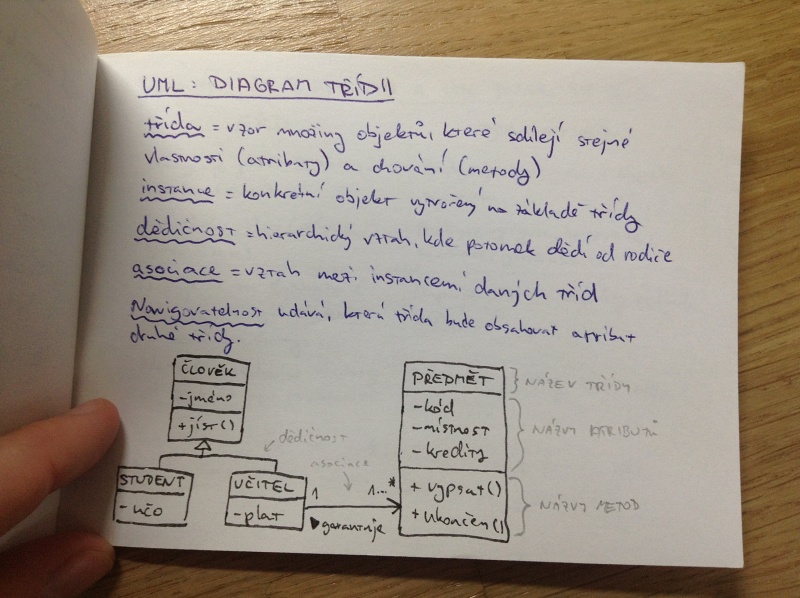 UML: DIAGRAM TŘÍD
třída = vzor množiny objektů, které sdílejí stejné
vlastnosti (atributy) a chování (metody)
instance = konkrétní objekt vytvořený na základě třídy
dědičnost = hierarchický vztah, kde potomek dědí od rodiče
asociace = vztah mezi instancemi daných tříd
Navigovatelnost udává, která třída bude obsahovat atribut
druhé třídy.
ČLOVĚK
-jméno
+jíst()
dědičnost
asociace
STUDENT
-učo
UČITEL
-plat
1
1..*
garantuje
PŘEDMĚT
-kód
-místnost
-kredity
+vypsat()
+ukončen()
NÁZEV TŘÍDY
NÁZVY ATRIBUTŮ
NÁZVY METOD